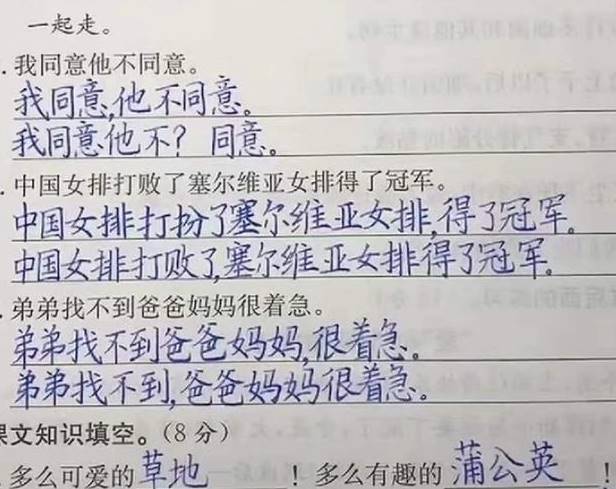 一起走。
.我同意他不同意。
我同意,他不同意。
我同意他不? 同意。
.中国女排打败了塞尔维亚女排得了冠军。
中国女排打扮了塞尔维亚女排,得了冠军.
中国女排打败了,塞尔维亚女排得了冠军.
.弟弟找不到爸爸妈妈很着急。
弟弟找不到爸爸妈妈,很着急。
弟弟找不到,爸爸妈妈很着急。
课文知识填空。(8分)
.多么可爱的草地!多么有趣的蒲公英!